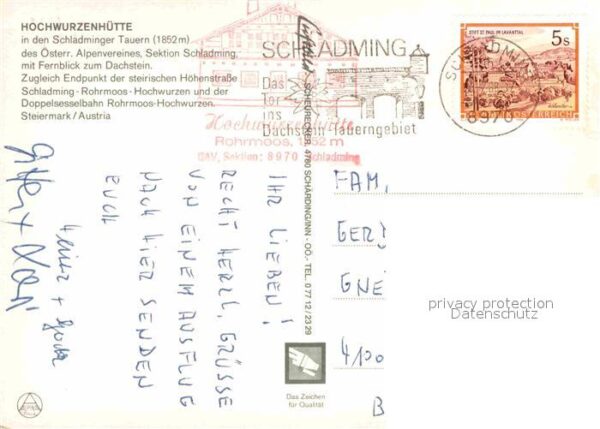 HOCHWURZENHÜTTE
in den Schladminger Tauern (1852 m)
des Österr. Alpenvereines, Sektion Schladming,
mit Fernblick zum Dachstein.
Zugleich Endpunkt der steirischen Höhenstraße
Schladming - Rohrmoos - Hochwurzen und der
Doppelsesselbahn Rohrmoos-Hochwurzen.
Steiermark / Austria
SCHLADMING
Das
Tor
ins
Dachstein-Tauerngebiet
Hochwurzenhütte
Rohrmoos, 1852 m
ÖAV, Sektion: 8970 Schladming
STIFT ST. PAUL IM LAVANTTAL
5s
REPUBLIK ÖSTERREICH
SCHLADMING
8970
4780 SCHÄRDING/INN - OÖ. - TEL. 0 77 12 / 23 29
IHR LIEBEN!
RECHT HERZL. GRÜSSE
VON EINEM AUSFLUG
NACH HIER SENDEN
EUCH
Heinz +
FAM.
GER
GNE
4100
B
privacy protection
Datenschutz
Das Zeichen
für Qualität